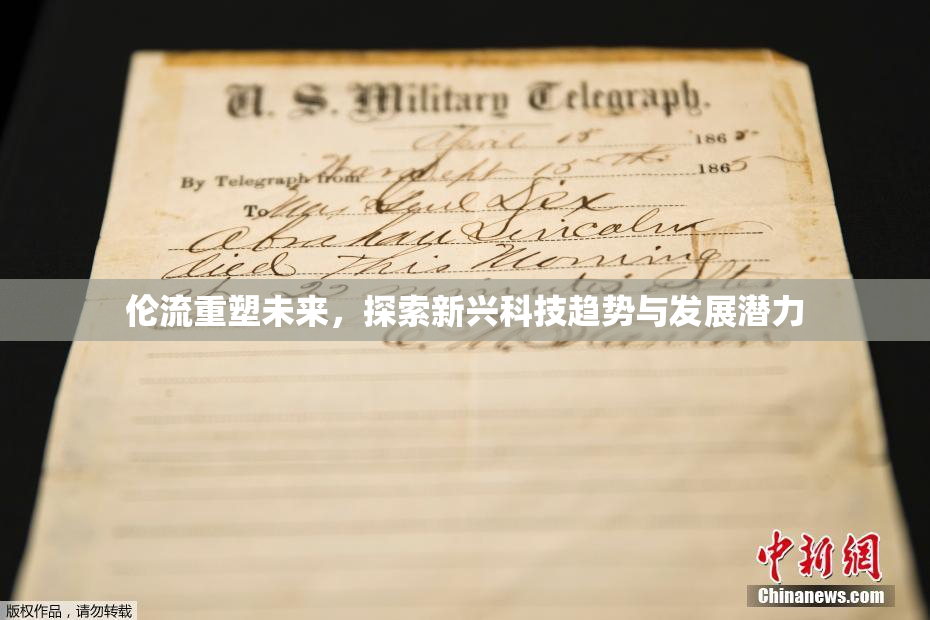 U. S. Military Telegraph.
April 15 1865
By Telegraph from War Dept 15th 1865
To Maj Genl Dix
Abraham Lincoln
died This Morning
at 22 minutes after
伦流重塑未来，探索新兴科技趋势与发展潜力
E. M. Stanton
中新网
Chinanews.com
版权作品，请勿转载